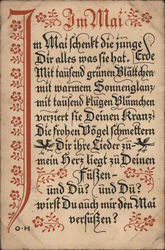 Im Mai
Im Mai schenkt die junge
Dir alles was sie hat. Erde
Mit tausend grünen Blättchen
mit warmem Sonnenglanz
mit tausend klugen Blümchen
verziert sie Deinen Kranz;
Die frohen Vögel schmettern
Dir ihre Lieder zu
mein Herz liegt zu Deinen
Füßen-
und Du? und Du?
wirst Du auch mir den Mai
versüßen?
O·M